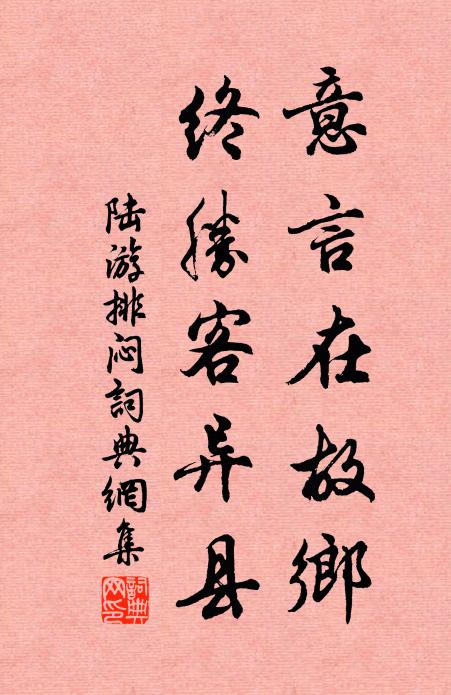 意言在故鄉
终勝客异县
陆游排闷詞典網集
詞典網印